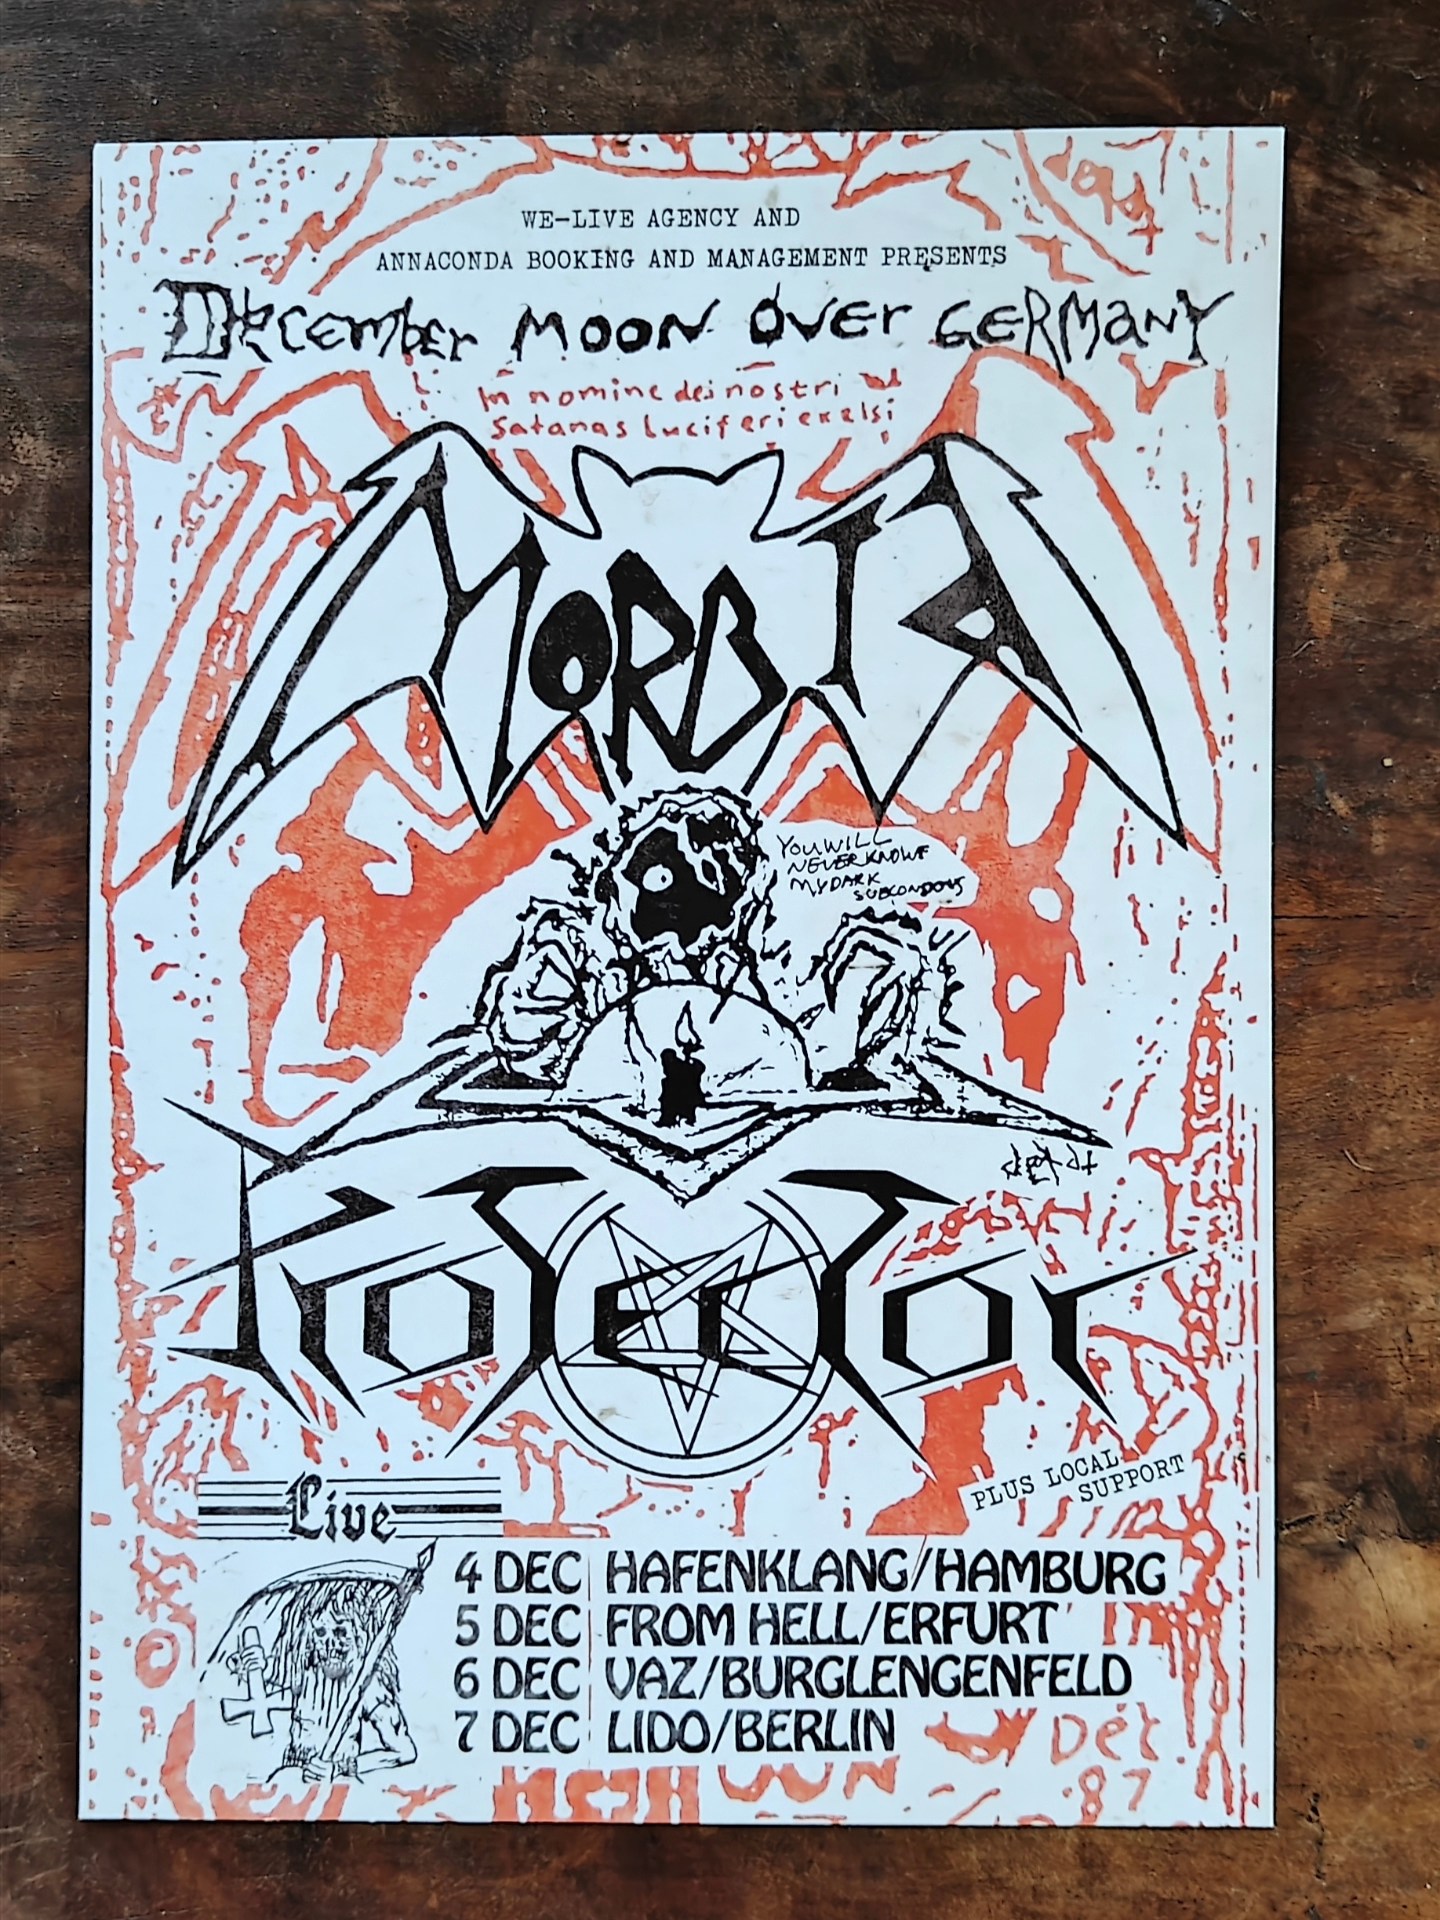 WE-LIVE AGENCY AND
ANNACONDA BOOKING AND MANAGEMENT PRESENTS
DECEMBER MOON OVER GERMANY
In nomine dei nostri
Satanas luciferi exelsi
MORBID
YOU WILL
NEVER KNOWE
MY DARK
SUBCONDOUS
PROTECTOR
PLUS LOCAL
SUPPORT
Live
4 DEC HAFENKLANG/HAMBURG
5 DEC FROM HELL/ERFURT
6 DEC VAZ/BURGLENGENFELD
7 DEC LIDO/BERLIN
Dec
87